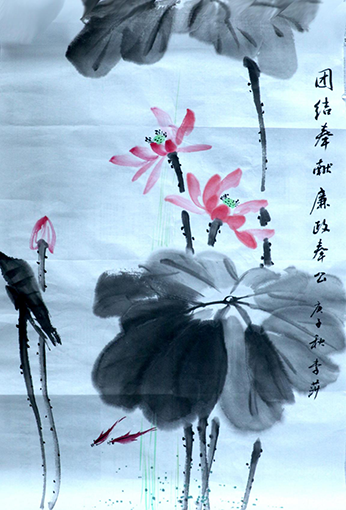 团结奉献廉政奉公
庚子秋李莎